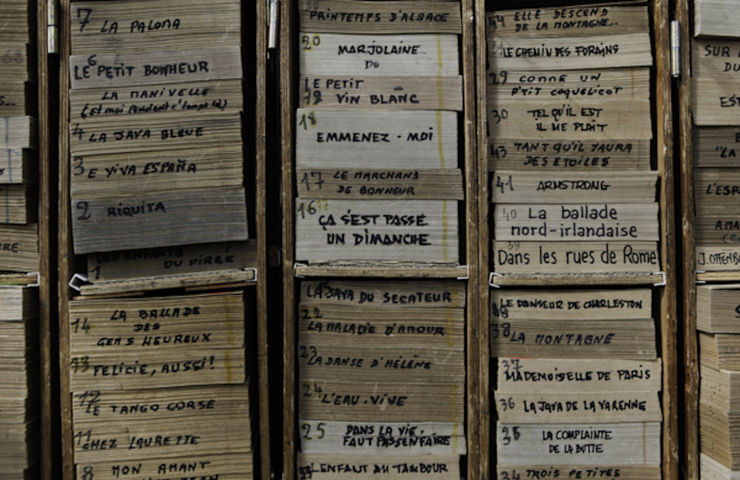 7
LA PALOMA
6
LE PETIT BONHEUR
LA MANIVELLE
(Et moi Pendant c'temps là)
4 LA JAVA BLEUE
3 E VIVA ESPAÑA
2 RIQUITA
1 LES ENFANTS
DU PIRÉE
14 LA BALLADE
DES
GENS HEUREUX
13 FELICIE, AUSSI!
12
LE TANGO CORSE
11
CHEZ LAURETTE
8 MON AMANT
PRINTEMPS D'ALSACE
20 MARJOLAINE
DU
LE PETIT
19 VIN BLANC
18
EMMENEZ-MOI
17 LE MARCHAND
DE BONHEUR
16
ÇA S'EST PASSÉ
UN DIMANCHE
LA JAVA DU SECATEUR
22
LA MALADIE D'AMOUR
23
LA DANSE D'HÉLÈNE
24
L'EAU-VIVE
25 DANS LA VIE.
FAUT PAS SEN FAIRE
L'ENFANT AU TAMBOUR
44 ELLE DESCEND
DE LA MONTAGNE...
LE CHEMIN DES FORAINS
29 COMME UN
P'TIT COQUELICOT
30 TEL QU'IL EST
IL ME PLAIT
43 TANT QU'IL Y AURA
DES ETOILES
41 ARMSTRONG
40 La ballade
nord-irlandaise
39
Dans les rues de Rome
LE DANSEUR DE CHARLESTON
38
LA MONTAGNE
37
MADEMOISELLE DE PARIS
36 LA JAVA DE LA VARENNE
35 LA COMPLAINTE
DE LA BUTTE
34 TROIS PETITES
SUR
DU
"LA
L'ESP
AMA
J. OFFENB